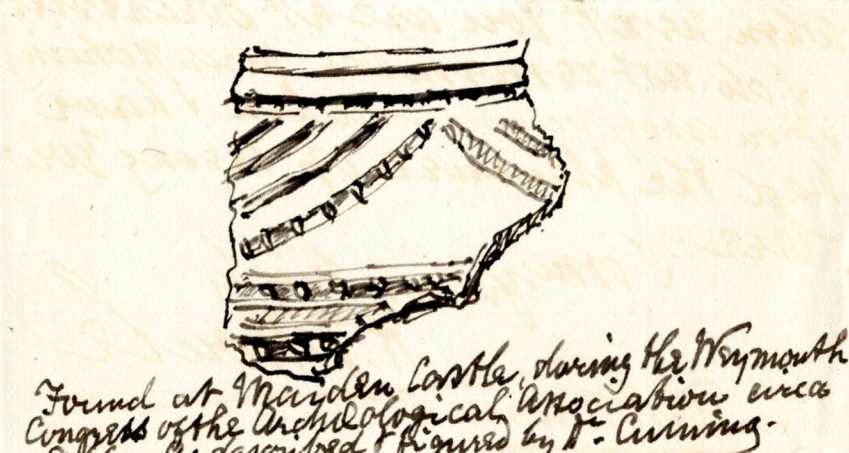 Found at Maiden Castle, during the Weymouth
Congress of the Archeological Association circa
described & figured by Dr. Cuming.